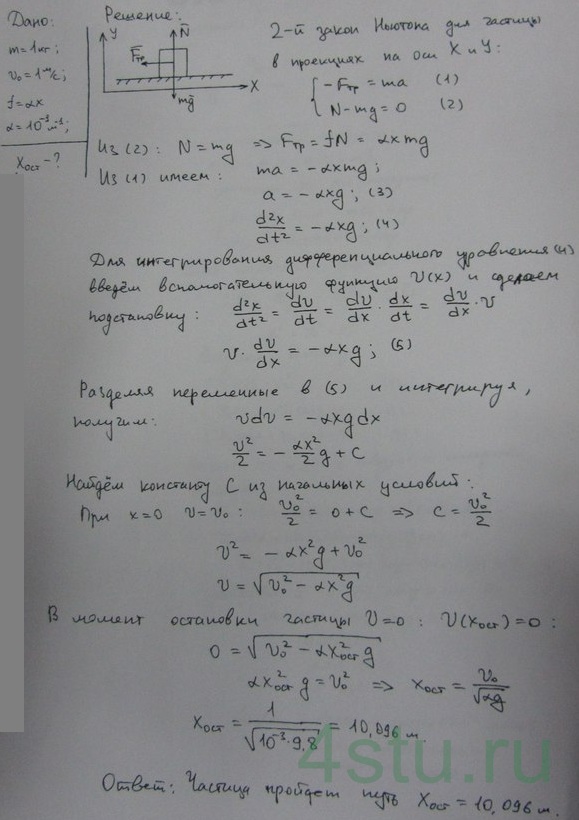 Дано:
m = 1 кг;
v₀ = 1 м/с;
f = αx
α = 10⁻³ м⁻¹;
Xост - ?
Решение:
Y
N̄
F̄тр
X
mḡ
2-й закон Ньютона для частицы
в проекциях на оси X и Y:
{ -Fтр = ma (1)
N - mg = 0 (2)
Из (2): N = mg => Fтр = fN = αxmg
Из (1) имеем: ma = -αxmg;
a = -αxg; (3)
d²x/dt² = -αxg; (4)
Для интегрирования дифференциального уравнения (4)
введём вспомогательную функцию V(x) и сделаем
подстановку: d²x/dt² = dv/dt = dv/dx · dx/dt = dv/dx · v
v · dv/dx = -αxg; (5)
Разделяя переменные в (5) и интегрируя,
получим: vdv = -αxgdx
v²/2 = - αx²/2 g + C
Найдём константу C из начальных условий:
При x=0 v=v₀ : v₀²/2 = 0 + C => C = v₀²/2
v² = -αx²g + v₀²
v = √(v₀² - αx²g)
В момент остановки частицы V=0 : V(xост) = 0 :
0 = √(v₀² - αx²ост g)
αx²ост g = v₀² => xост = v₀/√(αg)
xост = 1/√(10⁻³·9,8) = 10,096 м.
Ответ: Частица пройдет путь Xост = 10,096 м.
4stu.ru